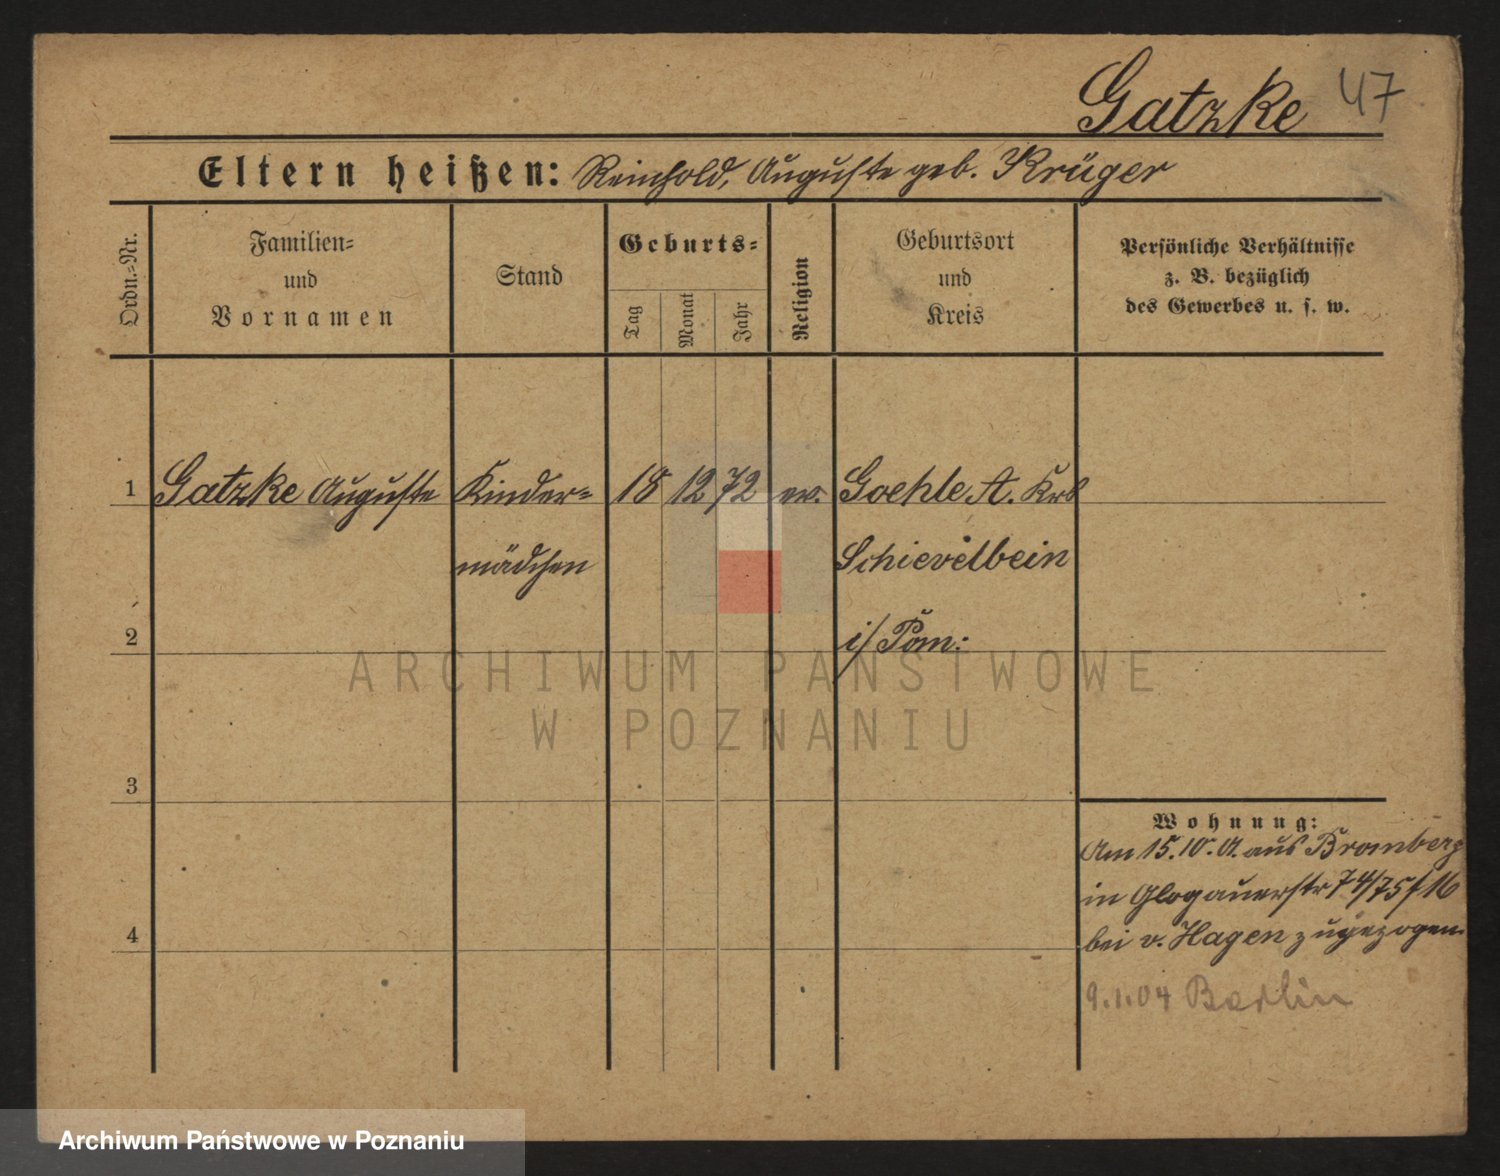 Gatzke 47
Eltern heißen: Reinhold, Auguste geb. Krüger
Ordn.=Nr.
Familien=
und
Vornamen
Stand
Geburts=
Tag
Monat
Jahr
Religion
Geburtsort
und
Kreis
Persönliche Verhältnisse
z. B. bezüglich
des Gewerbes u. s. w.
1 Gatzke Auguste Kinder= 18 12 72 ev. Goehle A. Krs
mädchen Schievelbein
2 i/ Pom:
3
4
Wohnung:
Am 15.10. A. aus Bromberg
in Glogauerstr 74/75
bei v. Hagen zugezogen.
9.1.04 Berlin
ARCHIWUM PAŃSTWOWE
W POZNANIU
Archiwum Państwowe w Poznaniu